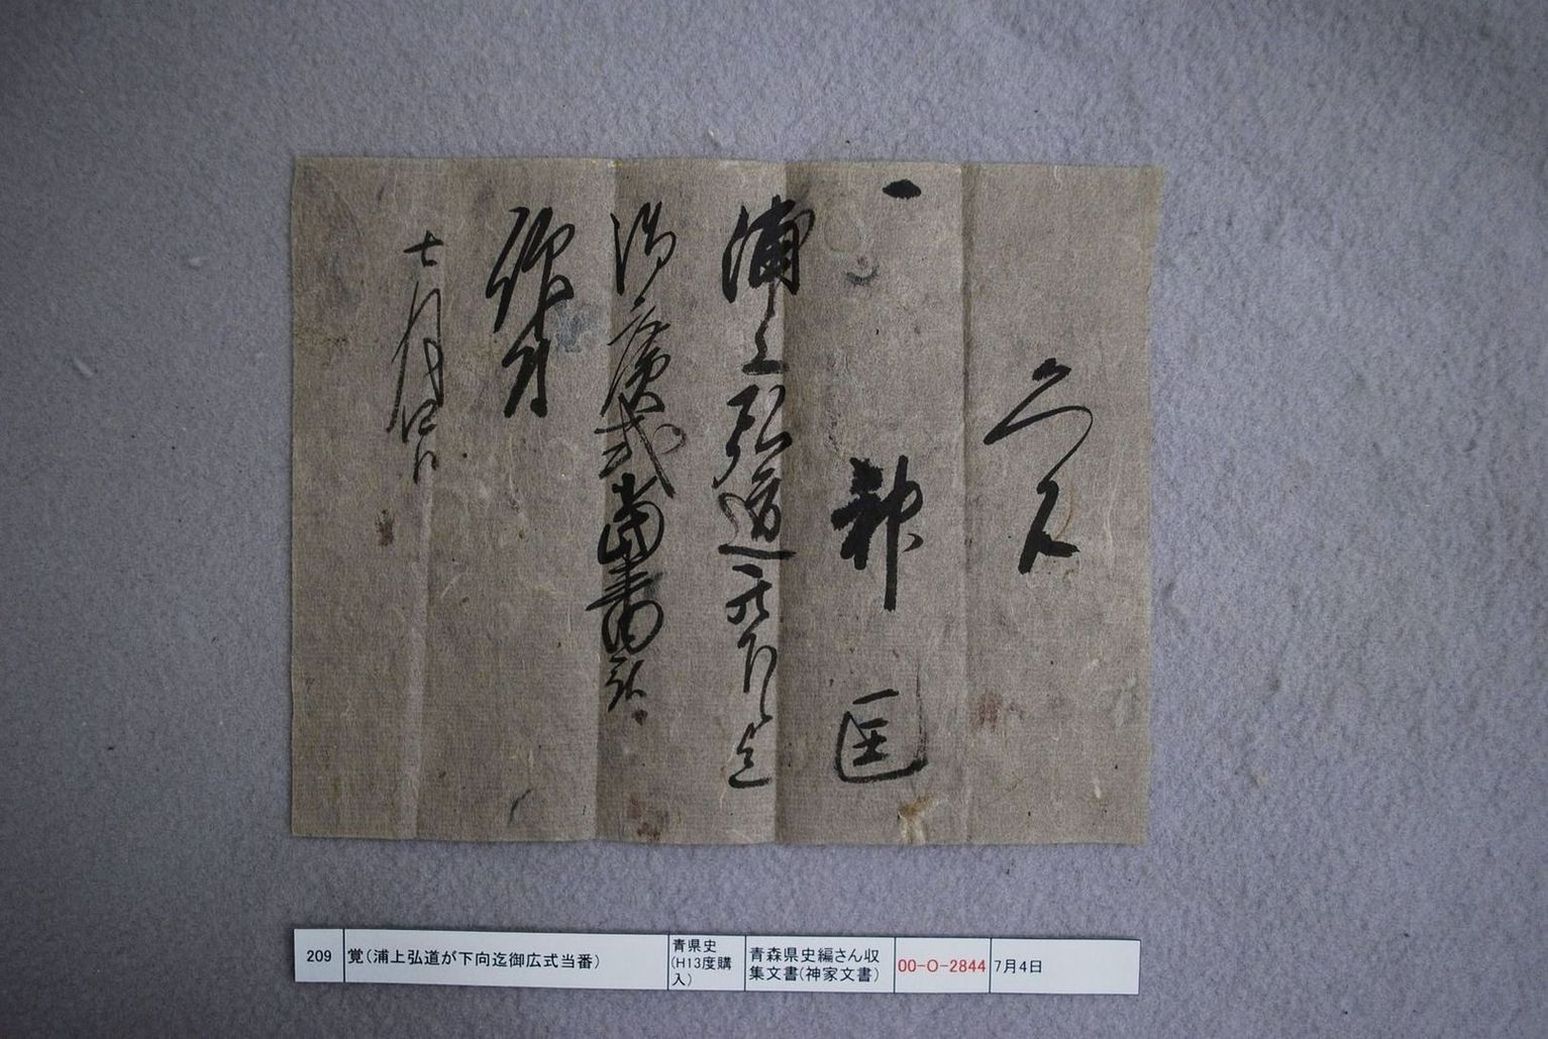 覚
一
神 匡
浦上弘道罷下候迄
御広式当番
七月四日
209
覚(浦上弘道が下向迄御広式当番)
青県史
(H13度購
入)
青森県史編さん収
集文書(神家文書)
00-O-2844
7月4日